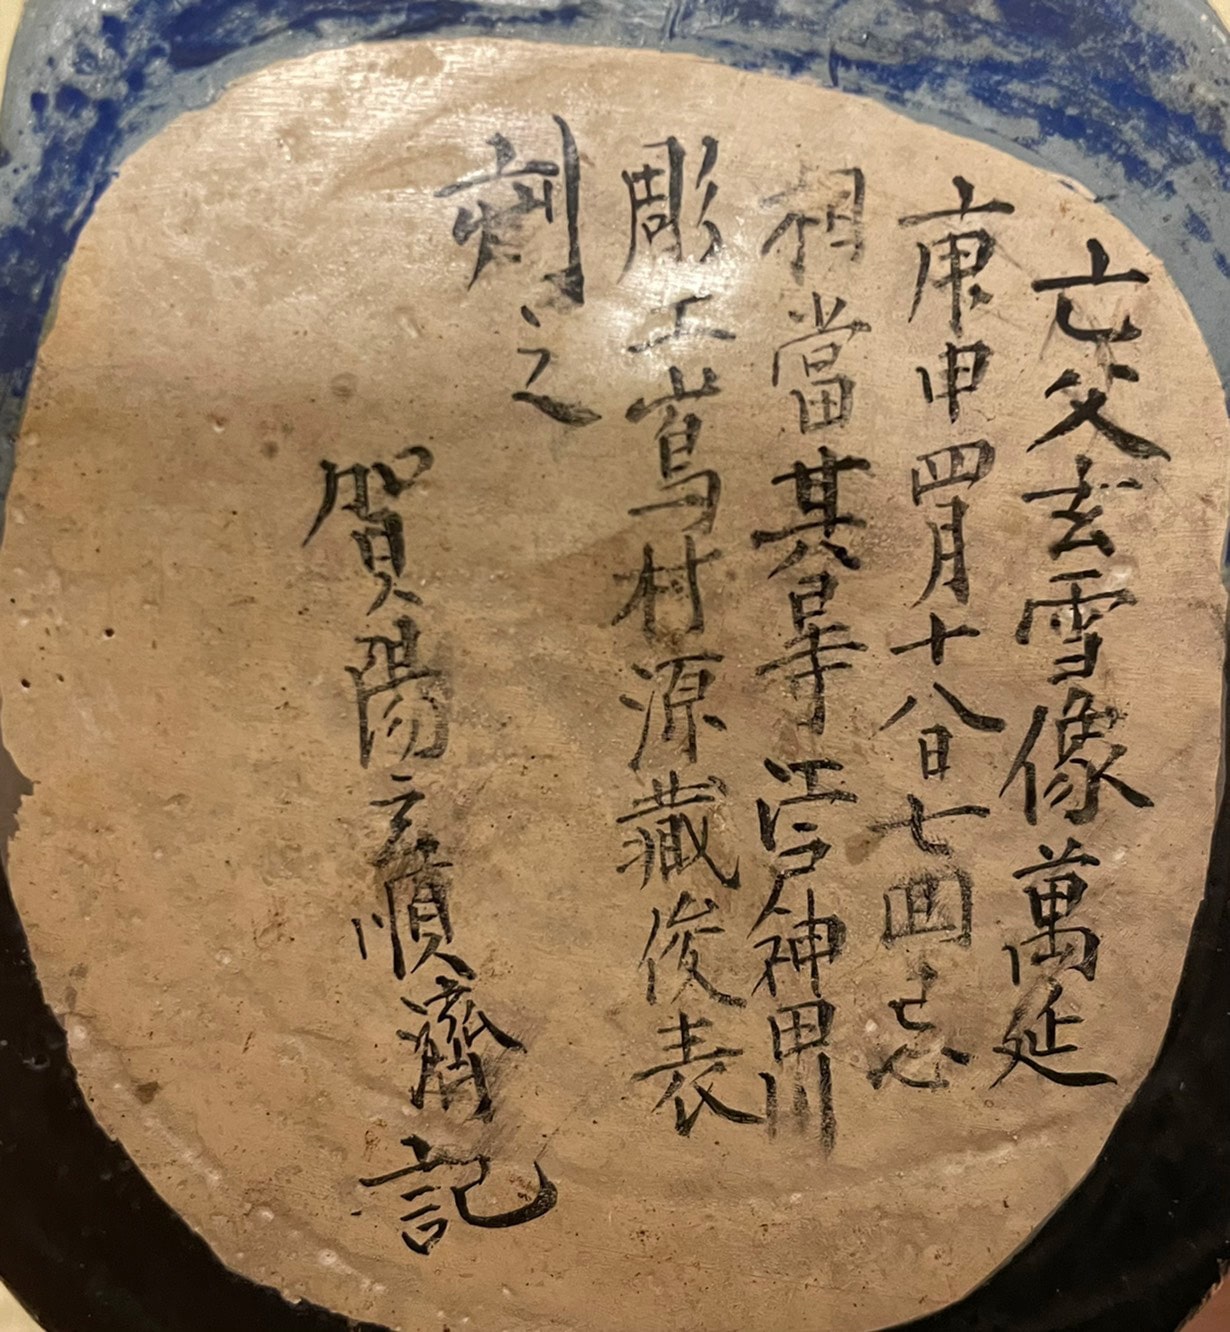 亡父玄雪像萬延
庚申四月十八日七回忌
相當其辰江戸神田川
彫工嶌村源藏俊表
刻之
賀陽玄順濟記